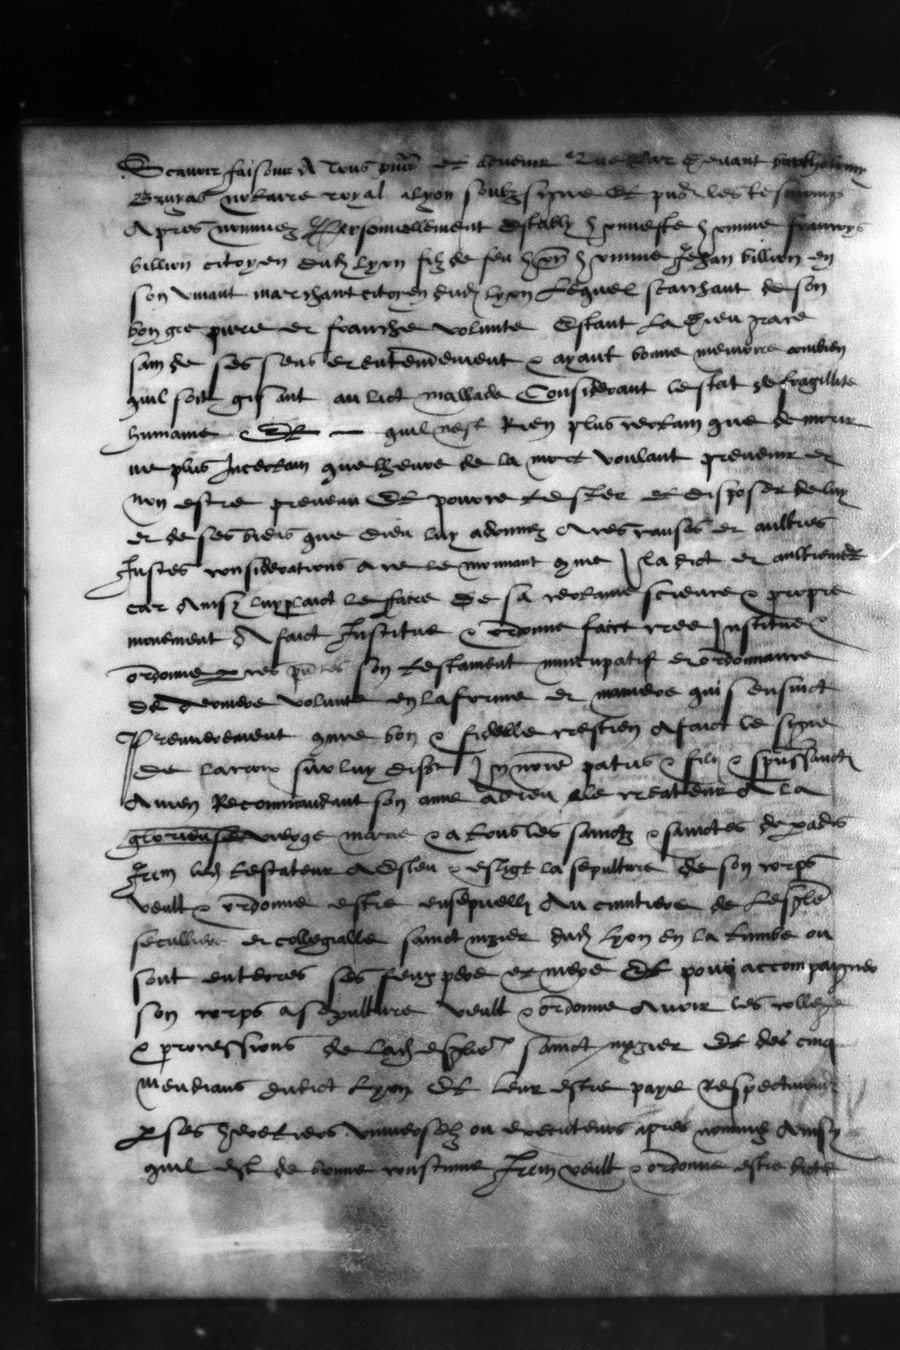 Scavoir faisons A tous pns et advenir Que Par devant barthelemy
Bruyas notaire royal a lyon soubzsigne Et pns les tesmoings
Apres nommez Personnellement estably honneste homme francoys
billion citoyen dud lyon filz de feu hon homme Jehan billion en
son vivant marchant citoyen dud lyon Lequel scaichant de son
bon gre pure et franche volunte Estant la dieu grace
sain de ses sens et entendement & ayant bonne memoire combien
quil soit gisant au lict mallade Considerant lestat de fragillite
humaine Et quil nest Rien plus certain que de morir
ne plus Incertain que lheure de la mort voulant prevenir et
non estre prevenu Et pouvoir tester et disposer de luy
et de ses biens que dieu luy a donnez A ces causes et aultres
Justes considerations a ce le mouvant comme Il a dict et aultrement
car Ainsy luy plaict le faire De sa certaine science & propre
movement A faict Institue & ordonne faict cree Institue &
ordonne ces pntes son testament nuncupatif et ordonnance
de derniere volunte en la forme et maniere qui sensuict
Premierement comme bon & fidelle crestien A faict le signe
de la croix sur luy disant In noie patris & filii & spus sancti
Amen Recommandant son ame a dieu le createur A la
glorieuse vierge marie & a tous les sainctz & sainctes de paradis
Item led testateur A esleu & eslist la sepulture de son corps
veult & ordonne estre ensepvelly Au cimitiere de Lesglise
seculliere et collegialle sainct nizier dud Lyon en la tumbe ou
sont enterres ses feuz pere et mere Et pour accompaigner
son corps a sepulture veult & ordonne Avoir les colleges
& processions de lad esglise sainct nyzier Et des cinq
mendians dudict Lyon Et leur estre paye Respectivement
p ses heretiers universelz ou executeurs apres nommez Ainsy
quil est de bonne coustume Item veult & ordonne estre